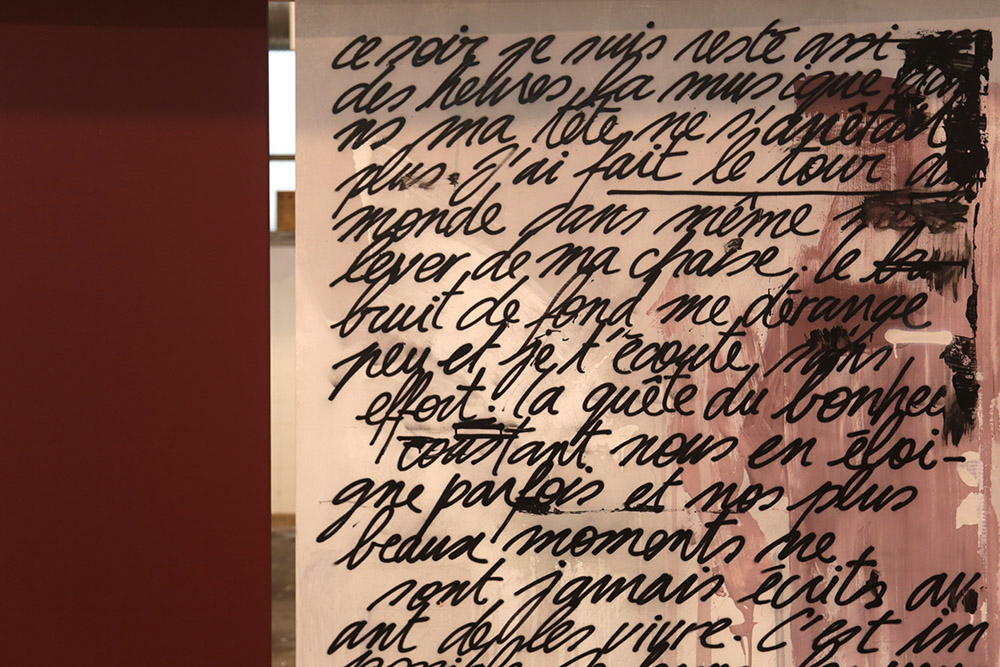 ce soir je suis resté assi
des heures, la musique dan
ns ma tête, ne s'arrêtait
plus. j'ai fait le tour du
monde sans même me
lever, de ma chaise. le
bruit de fond me dérange
peu, et je t'écoute, sans
effort. la quête du bonheu
constant nous en éloi-
gne parfois et nos plus
beaux moments ne
sont jamais écrits av
ant de les vivre. C'est im